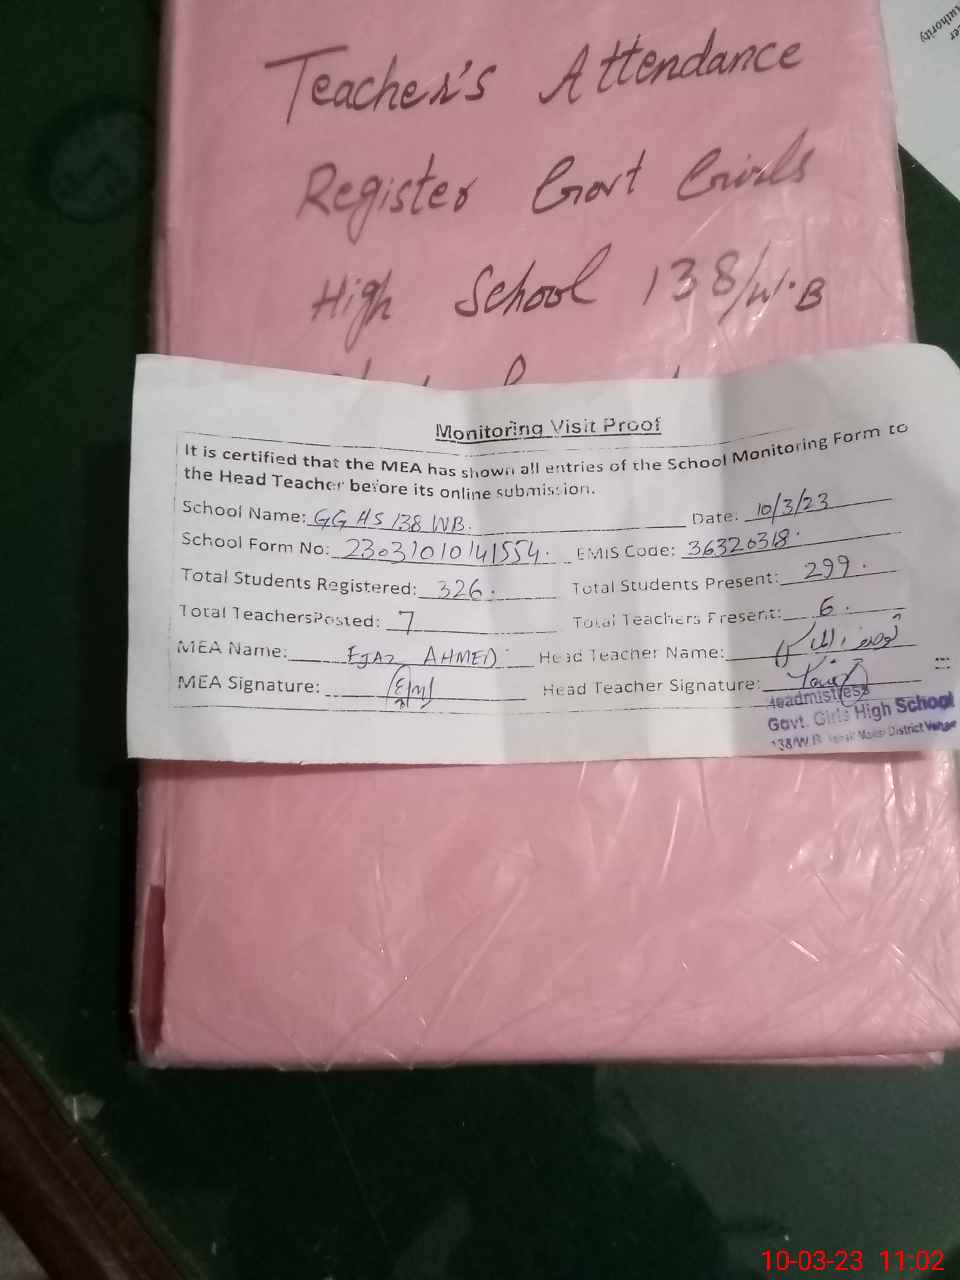 Authority
Teacher's Attendance
Register Govt Girls
High School 138/W.B
Monitoring Visit Proof
It is certified that the MEA has shown all entries of the School Monitoring Form to
the Head Teacher before its online submission.
School Name: GGHS 138 WB. Date: 10/3/23
School Form No: 23031010141554. EMIS Code: 36320318.
Total Students Registered: 326. Total Students Present: 299.
Total TeachersPosted: 7 Total Teachers Present: 6.
MEA Name: EJAZ AHMED Head Teacher Name:
MEA Signature: Head Teacher Signature:
Headmistress
Govt. Girls High School
138/W.B District
10-03-23 11:02